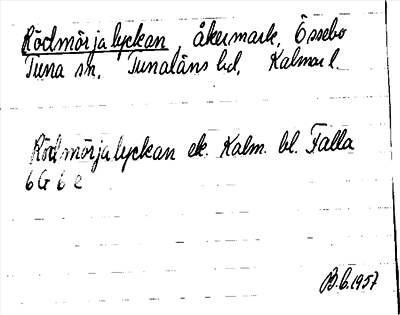 Rödmörjalyckan, åkermark, Össebo
Tuna sn, Tunaläns hd, Kalmar l.
Rödmörjalyckan ek. Kalm. bl. Falla
6G 6 e
B.G. 1957